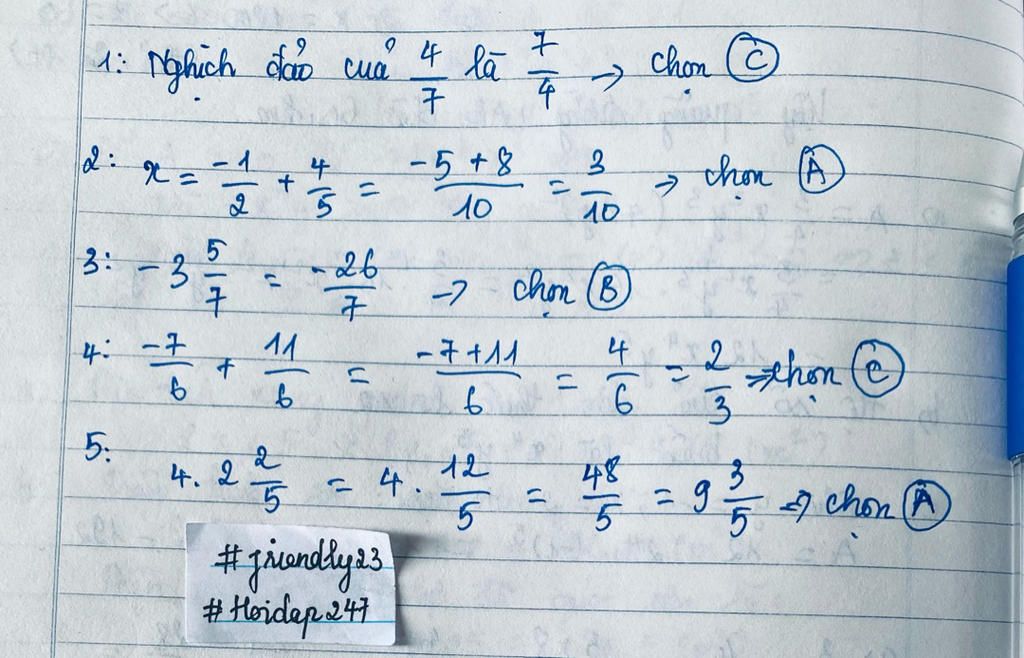 1: Nghịch đảo của 4/7 là 7/4 → chọn C
2: x = -1/2 + 4/5 = -5+8/10 = 3/10 → chọn A
3: -3 5/7 = -26/7 → chọn B
4: -7/6 + 11/6 = -7+11/6 = 4/6 = 2/3 → chọn C
5:
4. 2 2/5 = 4 . 12/5 = 48/5 = 9 3/5 → chọn A
#friendly23
#Hoidap247